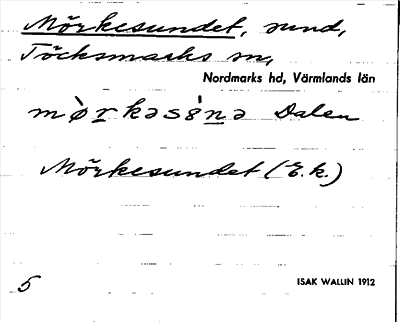 Mörkesundet, sund,
Töcksmarks sn,
Nordmarks hd, Värmlands län
mø̀rkəs8́nə Dalen
Mörkesundet (E.k.)
5
ISAK WALLIN 1912